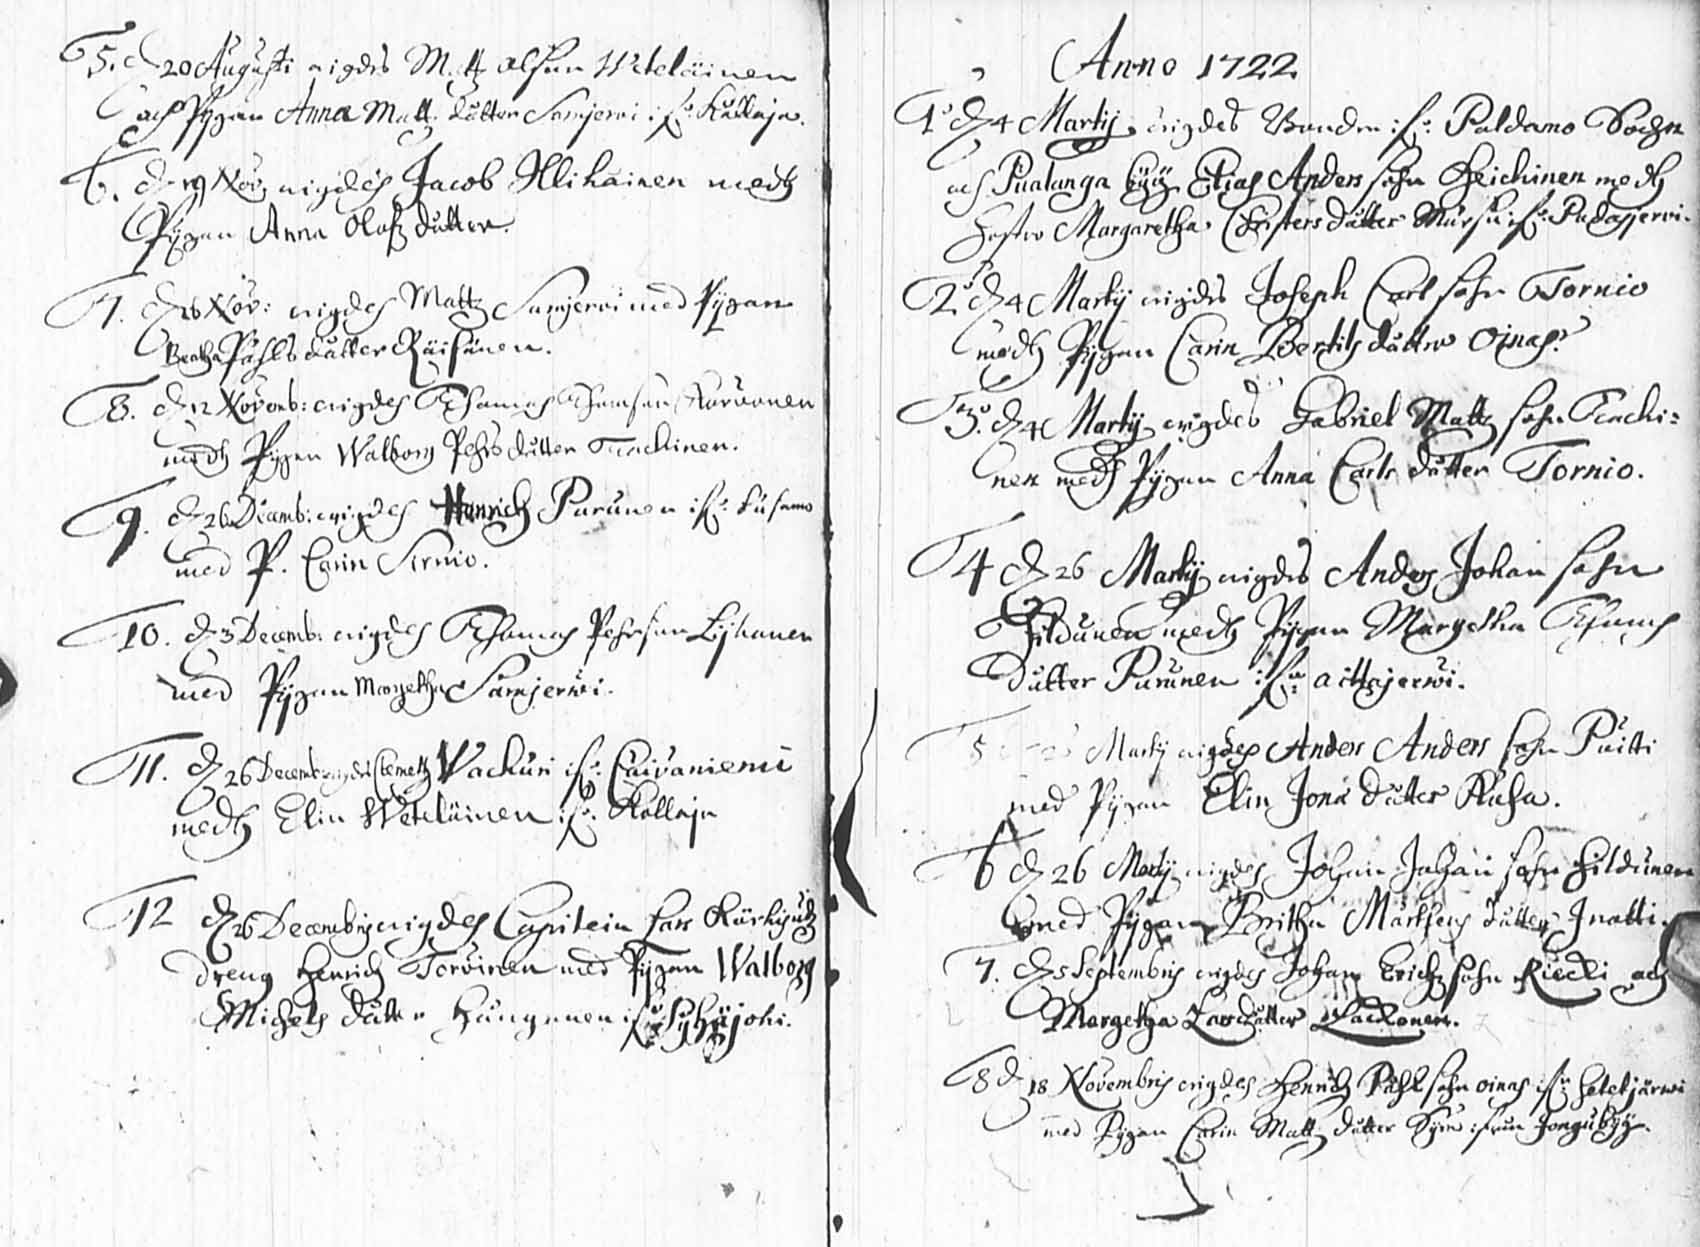 5. d 20 Augusti wigdes Matz Olsson Weteläinen
och Pygan Anna Matz dutter Samjerwi ifr: Kollaja.
6. d 19 Nov wigdes Jacob Illikainen medh
Pygan Anna Olofz dutter.
7. d 26 Nov: wigdes Matz Samjerwi med Pygan
Beatha Påhls dutter Räisänen.
8. d 12 Novemb: wigdes Thomas Thomson Korvonen
medh Pygan Walborg Pehrs dutter Tirackinen.
9. d 26 Decemb: wigdes Henrich Purunen ifr: Kusamo
med P. Carin Sirnio.
10. d 3 Decemb: wigdes Thomas Pehrson Lijkanen
med Pygan Margetha Sämjerwi.
11. d 26 Decemb wigdes Clemetz Wackuri ifr: Caivaniemi
medh Elin Weteläinen ifr: Kollaja
12 d 26 Decembris wigdes Capitein Lars
dreng Henrich Tervinen med Pygan Walborg
Michels dutter Hungenen ifr: Pyhäjoki.
Anno 1722
1. d 4 Martij wigdes Bonden ifr: Paldamo Sochn
och Pualanga byy Elias Anders sohn Heickinen medh
Hustro Margaretha Christers dutter Mursu ifr: Pudasjerwi.
2. d 4 Martij wigdes Joseph Carl sohn Tornio
medh Pygan Carin Bertils dutter Oinas.
3. d 4 Martij wigdes Gabriel Matz sohn Tirachi=
nen medh Pygan Anna Carls dutter Tornio.
4 d 26 Martij wigdes Anders Johan sohn
Hildunen medh Pygan Margetha Thomas
dutter Purunen ifr: aittajerwi.
5 Martij wigdes Anders Anders sohn Puitti
med Pygan Elin Jona dutter Kusa.
6 d 26 Martij wigdes Johan Johan sohn Hildunen
med Pygan Britha Mårthens dutter Inatti.
7. d 5 Septembris wigdes Johan Erichz sohn Riecki och
Margetha Lars dutter Lackonen.
8 d 18 Novembris wigdes Henrich Påhl sohn oinas ifr: hetekjärwi
med Pygan Carin Matz dutter ifrån Jongubyy.